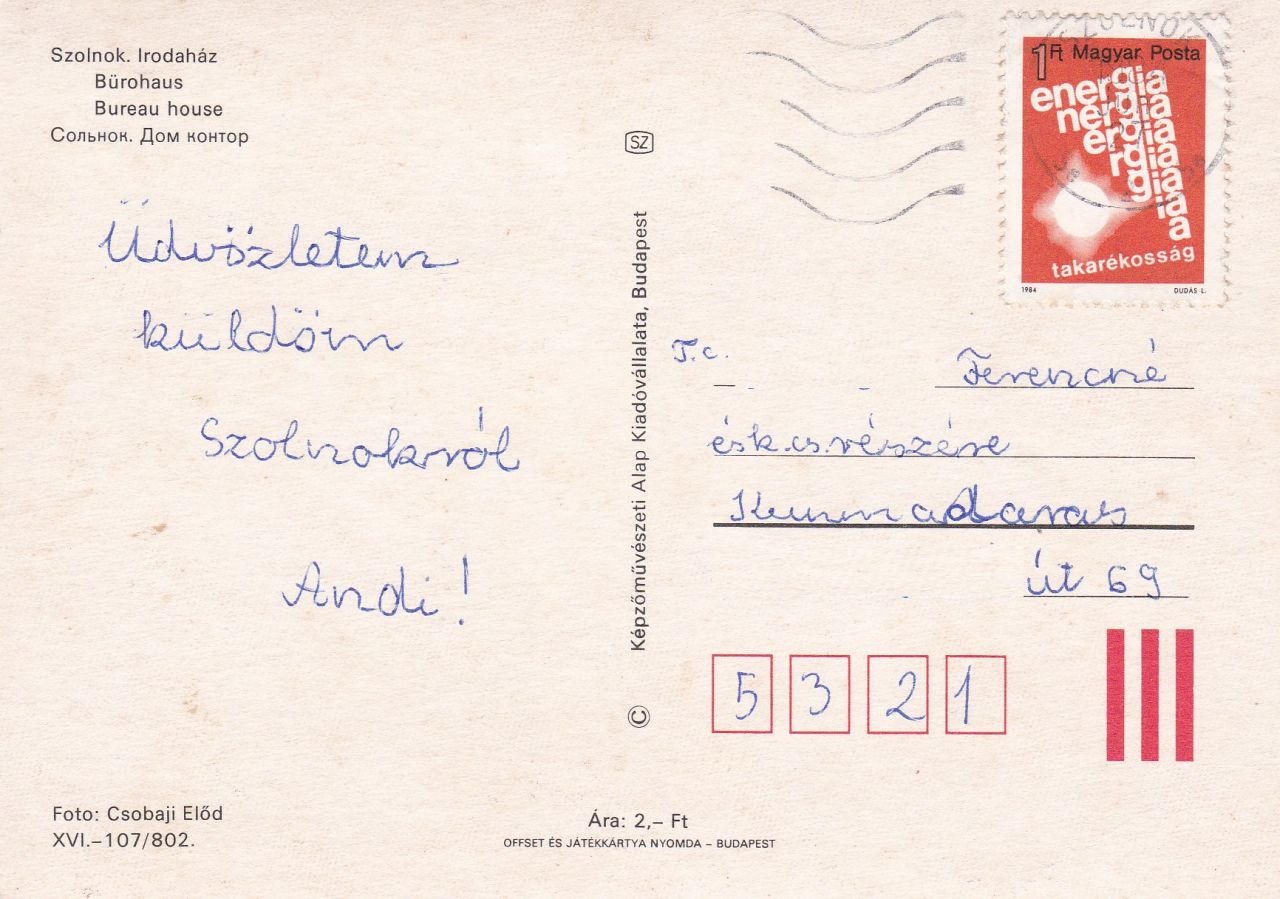 Szolnok. Irodaház
Bürohaus
Bureau house
Сольнок. Дом контор
Üdvözletem
küldöm
Szolnokról
Andi!
Foto: Csobaji Előd
XVI.–107/802.
SZ
Képzőművészeti Alap Kiadóvállalata, Budapest
©
Ára: 2,– Ft
OFFSET ÉS JÁTÉKKÁRTYA NYOMDA – BUDAPEST
1Ft Magyar Posta
energia
nergia
ergia
rgia
gia
ia
a
takarékosság
1984 DUDÁS L.
T.c.
Ferencné
és k.cs. részére
Kunmadaras
út 69
5 3 2 1